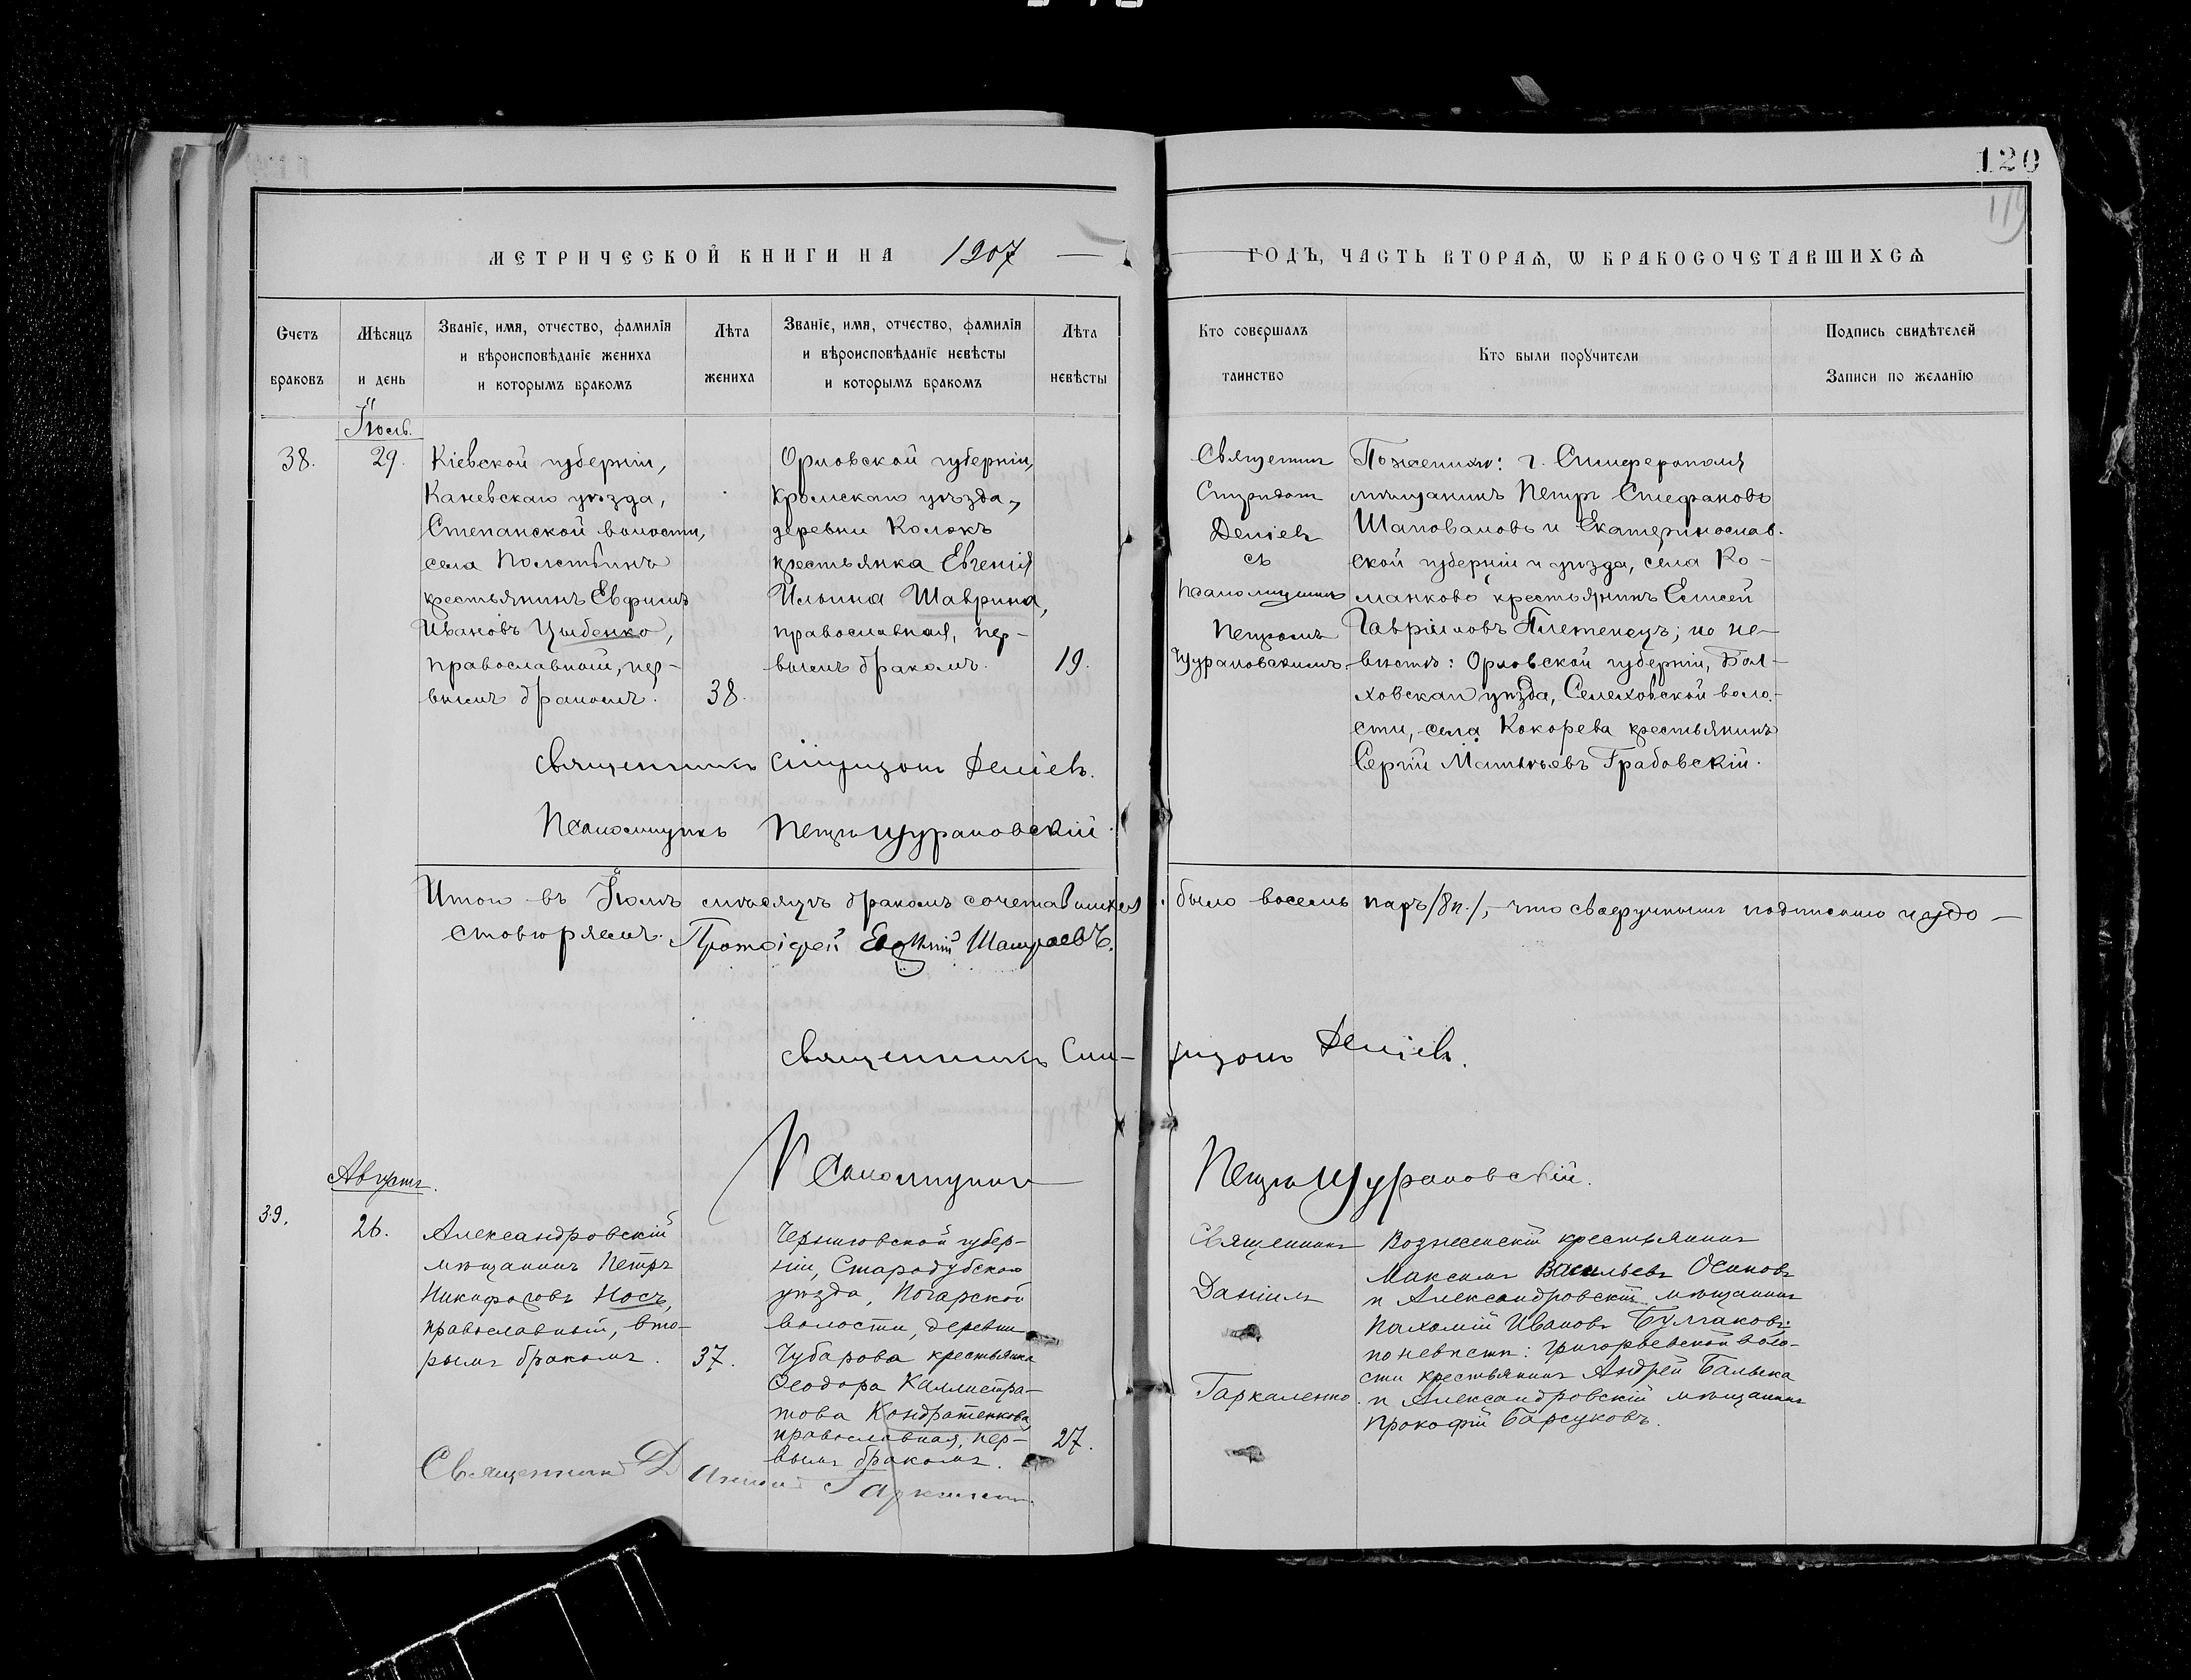 120
119
МЕТРИЧЕСКОЙ КНИГИ НА 1907
ГОДЪ, ЧАСТЬ ВТОРАѦ, Ѡ БРАКОСОЧЕТАВШИХСѦ
Счетъ браковъ
Мѣсяцъ и день
Званіе, имя, отчество, фамилія
и вѣроисповѣданіе жениха
и которымъ бракомъ
Лѣта жениха
Званіе, имя, отчество, фамилія
и вѣроисповѣданіе невѣсты
и которымъ бракомъ
Лѣта невѣсты
Кто совершалъ таинство
Кто были поручители
Подпись свидѣтелей
Записи по желанію
Іюль.
38.
29.
Кіевской губерніи,
Каневскаго уѣзда,
Степанской волости,
села
крестьянинъ Евфимій
Ивановъ Цыбенко,
православный, пер-
вымъ бракомъ.
38.
Орловской губерніи,
Кромскаго уѣзда,
деревни Колокъ
крестьянка Евгенія
Ильина Шаврина,
православная, пер-
вымъ бракомъ.
19.
Священникъ
Спиридонъ
Деміевъ
съ
псаломщикомъ
Петромъ
Щурановскимъ.
По женихѣ: г. Симферополя
мѣщанинъ Петръ Стефановъ
Шаповаловъ и Екатеринослав-
ской губерніи и уѣзда, села Ро-
манково крестьянинъ Елисей
Гавріиловъ Плетенецъ; по не-
вѣстѣ: Орловской губерніи, Бол-
ховскаго уѣзда, Селиховской воло-
сти, села Кокорева крестьянинъ
Сергій Матвѣевъ Грабовскій.
Священникъ Спиридонъ Деміевъ.
Псаломщикъ Петръ Щурановскій.
Итого въ Іюлѣ мѣсяцѣ бракомъ сочетавшихся было восемь паръ /8 п./, – что своеручнымъ подписомъ и удо-
стовѣряемъ. Протоіерей
Священникъ Спи-ридонъ Деміевъ.
Псаломщикъ Петръ Щурановскій.
Августъ.
39.
26.
Александровскій
мѣщанинъ Петръ
Никифоровъ Носъ,
православный, вто-
рымъ бракомъ.
37.
Черниговской губер-
ніи, Стародубскаго
уѣзда, Погарской
волости, деревни
Чубарова крестьянка
Ѳеодора Каллистра-
това Кондратенкова,
православная, пер-
вымъ бракомъ.
27.
Священникъ
Даніилъ
Гаркаленко.
Вознесенскій крестьянинъ
Максимъ Васильевъ Осиповъ
и Александровскій мѣщанинъ
Пахомій Ивановъ Булгаковъ:
по невѣстѣ: Григорьевской воло-
сти крестьянинъ Андрей Балыка
и Александровскій мѣщанинъ
Прокофій Барсуковъ.
Священникъ Даніилъ Гаркаленко.